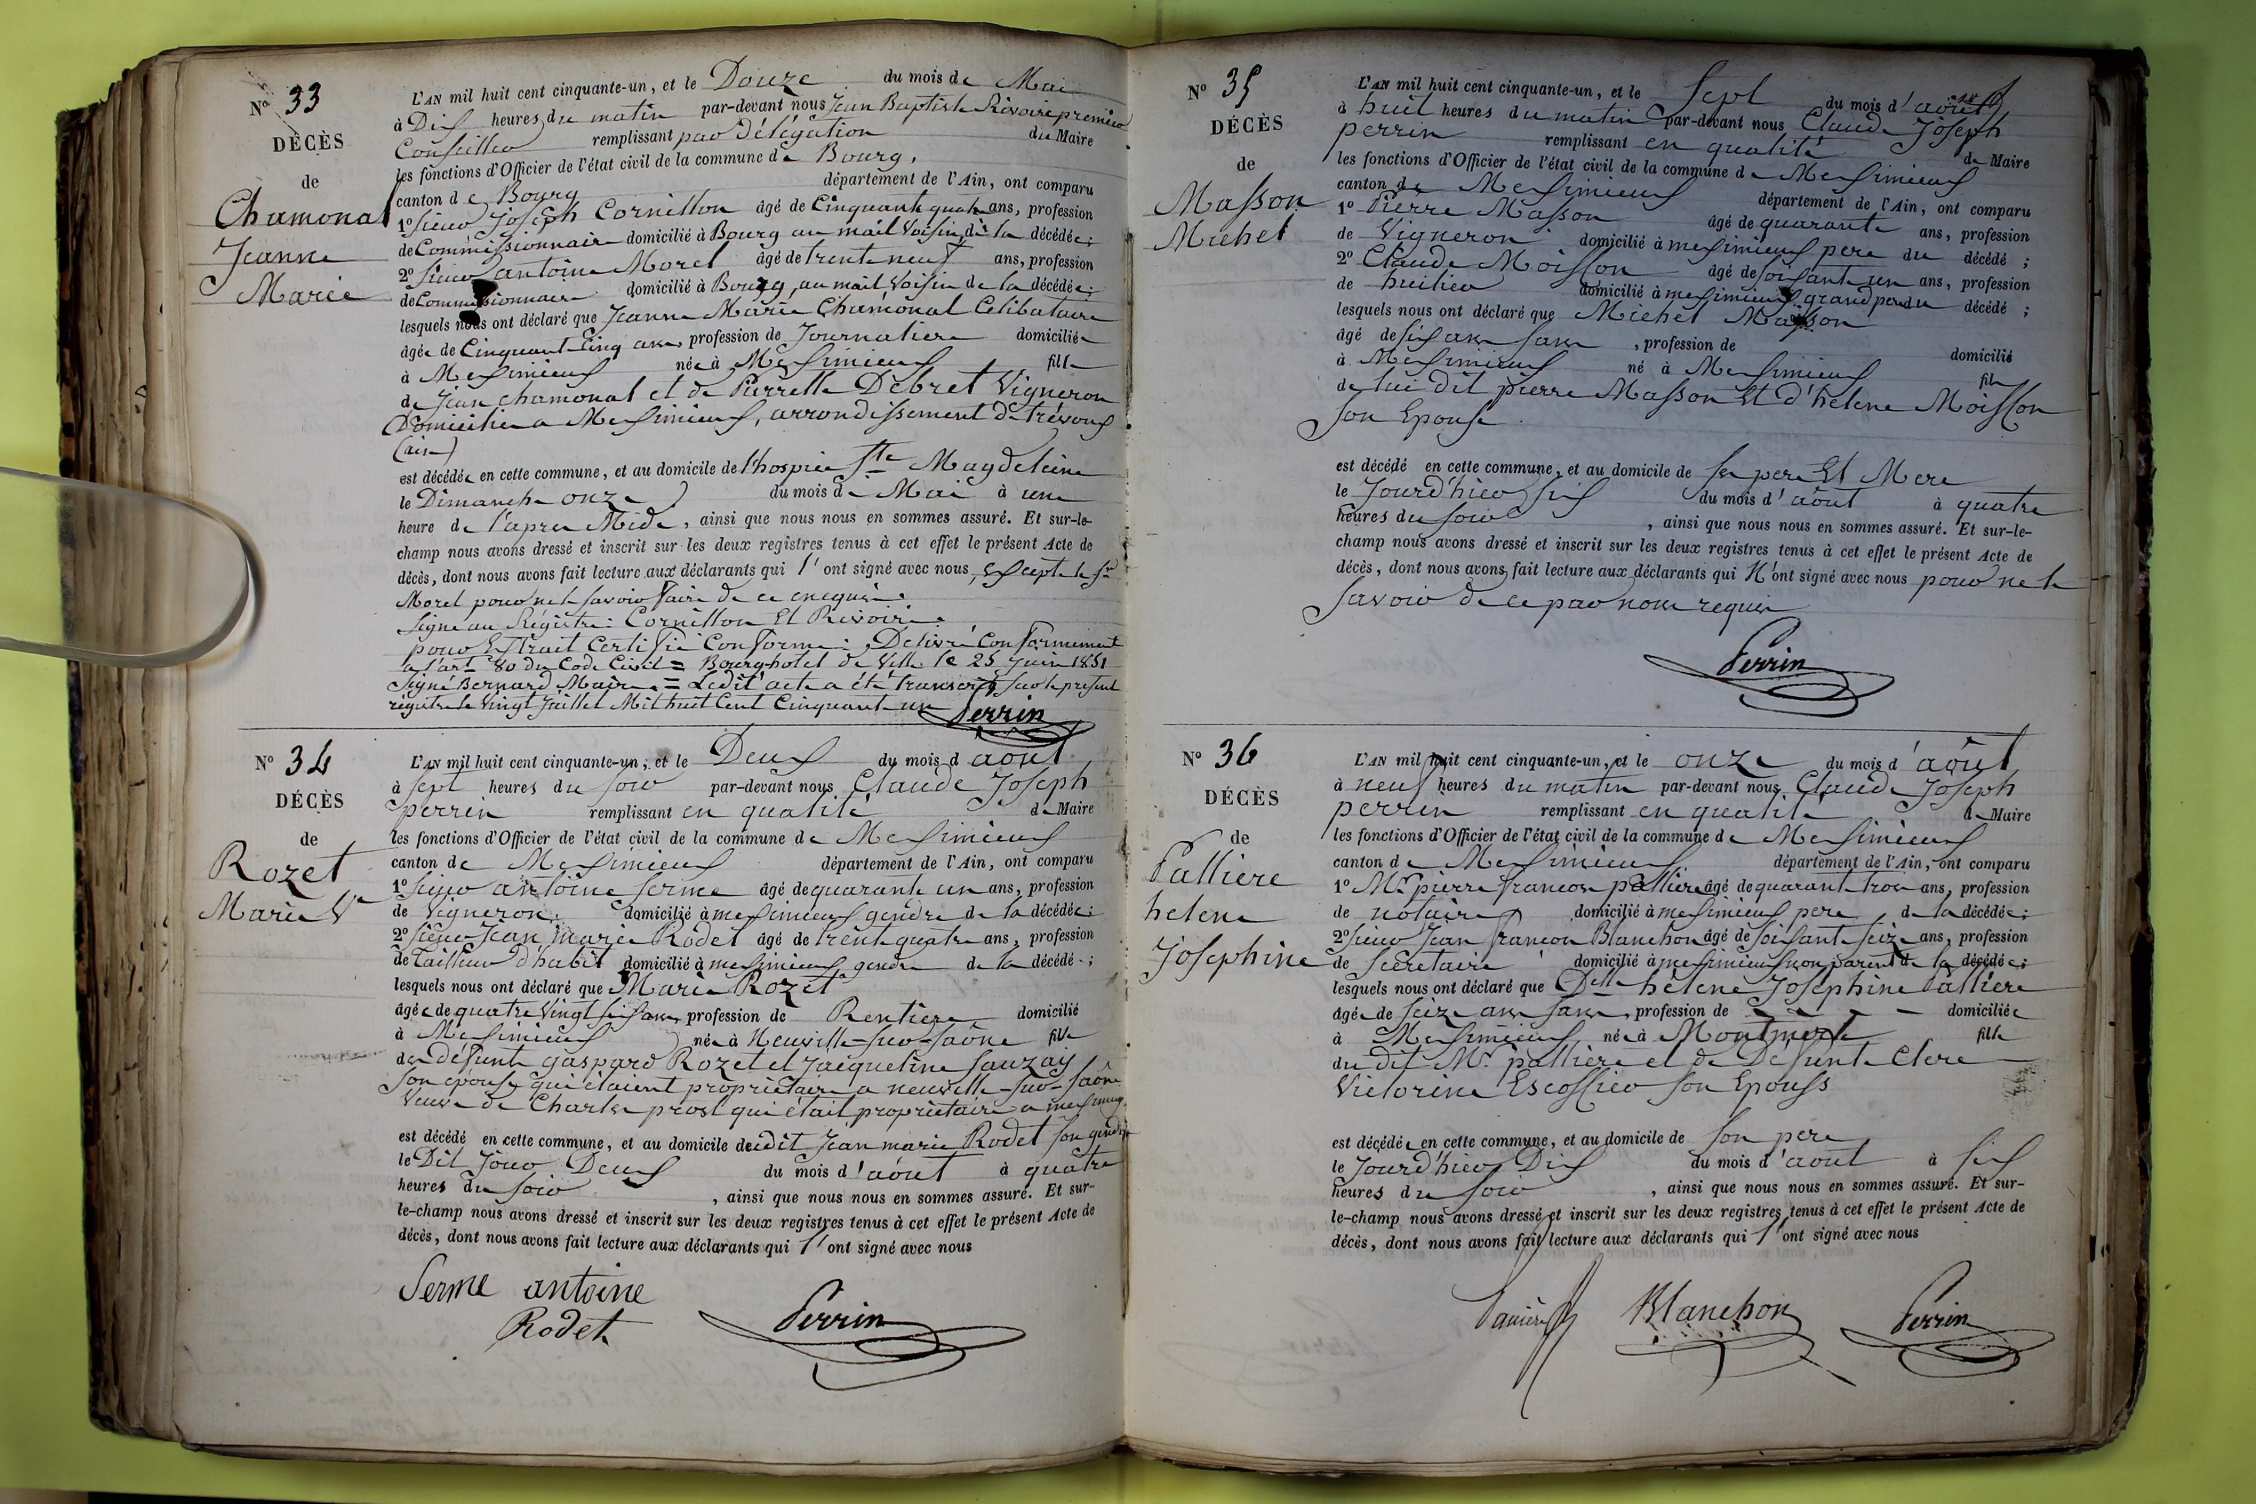 N.º 33
DÉCÈS
de
Chamonal
Jeanne
Marie
L'AN mil huit cent cinquante-un, et le Douze du mois de Mai
à Dix heures du matin par-devant nous Jean Baptiste Rivoire premier
Conseiller remplissant par délégation du Maire
les fonctions d'Officier de l'état civil de la commune de Bourg,
canton de Bourg département de l'Ain, ont comparu
1º Sieur Joseph Cornillon âgé de Cinquante quatre ans, profession
de Commissionnaire domicilié à Bourg au mail Voisin de la décédée;
2º Sieur antoine Morel âgé de trente neuf ans, profession
de Commissionnaire domicilié à Bourg, au mail Voisin de la décédée;
lesquels nous ont déclaré que Jeanne Marie Chamonal Celibataire
âgée de Cinquante Cinq ans profession de Journaliere domiciliée
à Messimieux née à Messimieux fille
de Jean chamonal et de Pierrette Debret Vigneron
Domicilié a Messimieux, arrondissement de trévoux
(ain)
est décédée en cette commune, et au domicile de l'hospice Ste Magdeleine
le Dimanche onze du mois de Mai à une
heure de l'apres Midi, ainsi que nous nous en sommes assuré. Et sur-le-
champ nous avons dressé et inscrit sur les deux registres tenus à cet effet le présent Acte de
décès, dont nous avons fait lecture aux déclarants qui l'ont signé avec nous, Excepté le Sr
Morel pour ne le savoir faire de ce enequis.
Signé au Régistre: Cornillon Et Rivoire.
pour Extrait Certifié Conforme: Delivré Conformement
a l'art 80 du Code Civil = Bourg hotel de Ville le 25 Juin 1851
Signé Bernard Maire. = Ledit acte a été transcrit sur le présent
régistre le Vingt Juillet Mil huit Cent Cinquante un Perrin
N.º 34
DÉCÈS
de
Rozet
Marie Ve
L'AN mil huit cent cinquante-un, et le Deux du mois d'août
à sept heures du soir par-devant nous Claude Joseph
perrin remplissant en qualité de Maire
les fonctions d'Officier de l'état civil de la commune de Messimieux
canton de Messimieux département de l'Ain, ont comparu
1º Sieur antoine Serme âgé de quarante un ans, profession
de Vigneron domicilié à messimieux gendre de la décédée;
2º Sieur Jean marie Rodet âgé de trente quatre ans, profession
de tailleur d'habit domicilié à messimieux gendre de la décédé.;
lesquels nous ont déclaré que Marie Rozet
âgée de quatre Vingt six ans, profession de Rentiere domicilié
à Messimieux née à Neuville-sur-saône fille
de défunt gaspard Rozet et Jacqueline Sauzay
son épouse qui étaient proprietaire a neuville-sur-saône
Veuve de Charles prost qui était proprietaire a messimieux
est décédé en cette commune, et au domicile dudit Jean marie Rodet son gendre
le Dit Jour Deux du mois d'août à quatre
heures du soir, ainsi que nous nous en sommes assuré. Et sur-
le-champ nous avons dressé et inscrit sur les deux registres tenus à cet effet le présent Acte de
décès, dont nous avons fait lecture aux déclarants qui l'ont signé avec nous
Serme antoine
Rodet Perrin
N.º 35
DÉCÈS
de
Masson
Michel
L'AN mil huit cent cinquante-un, et le Sept du mois d'août
à huit heures du matin par-devant nous Claude Joseph
perrin remplissant en qualité de Maire
les fonctions d'Officier de l'état civil de la commune de Messimieux
canton de Messimieux département de l'Ain, ont comparu
1º Pierre Masson âgé de quarante ans, profession
de Vigneron domicilié à messimieux pere du décédé;
2º Claude Moisson âgé de soixante un ans, profession
de huilier domicilié à messimieux grand pere du décédé;
lesquels nous ont déclaré que Michel Masson
âgé de six ans sans, profession de domicilié
à Messimieux né à Messimieux fils
de lui dit pierre Masson Et d'helene Moisson
son Epouse
est décédé en cette commune, et au domicile de ses pere Et Mere
le Jourd'hier six du mois d'août à quatre
heures du soir, ainsi que nous nous en sommes assuré. Et sur-le-
champ nous avons dressé et inscrit sur les deux registres tenus à cet effet le présent Acte de
décès, dont nous avons fait lecture aux déclarants qui N'ont signé avec nous pour ne le
savoir de ce par nous requis
Perrin
N.º 36
DÉCÈS
de
Palliere
helene
Josephine
L'AN mil huit cent cinquante-un, et le onze du mois d'août
à neuf heures du matin par-devant nous Claude Joseph
perrin remplissant en qualité de Maire
les fonctions d'Officier de l'état civil de la commune de Messimieux
canton de Messimieux département de l'Ain, ont comparu
1º Mr pierre francois pallière âgé de quarante trois ans, profession
de notaire domicilié à messimieux pere de la décédée;
2º Sieur Jean francois Blanchon âgé de soixante seize ans, profession
de Secretaire domicilié à messimieux non parent de la décédée;
lesquels nous ont déclaré que Delle helene Josephine Palliere
âgée de seize ans sans, profession de domiciliée
à Messimieux née à Montmerle fille
du dit Mr pallière et de Defunte Clere
Victorine Escoffier son Epouse
est décédée en cette commune, et au domicile de son pere
le Jourd'hier Dix du mois d'août à six
heures du soir, ainsi que nous nous en sommes assuré. Et sur-
le-champ nous avons dressé et inscrit sur les deux registres tenus à cet effet le présent Acte de
décès, dont nous avons fait lecture aux déclarants qui l'ont signé avec nous
Pallière Blanchon Perrin